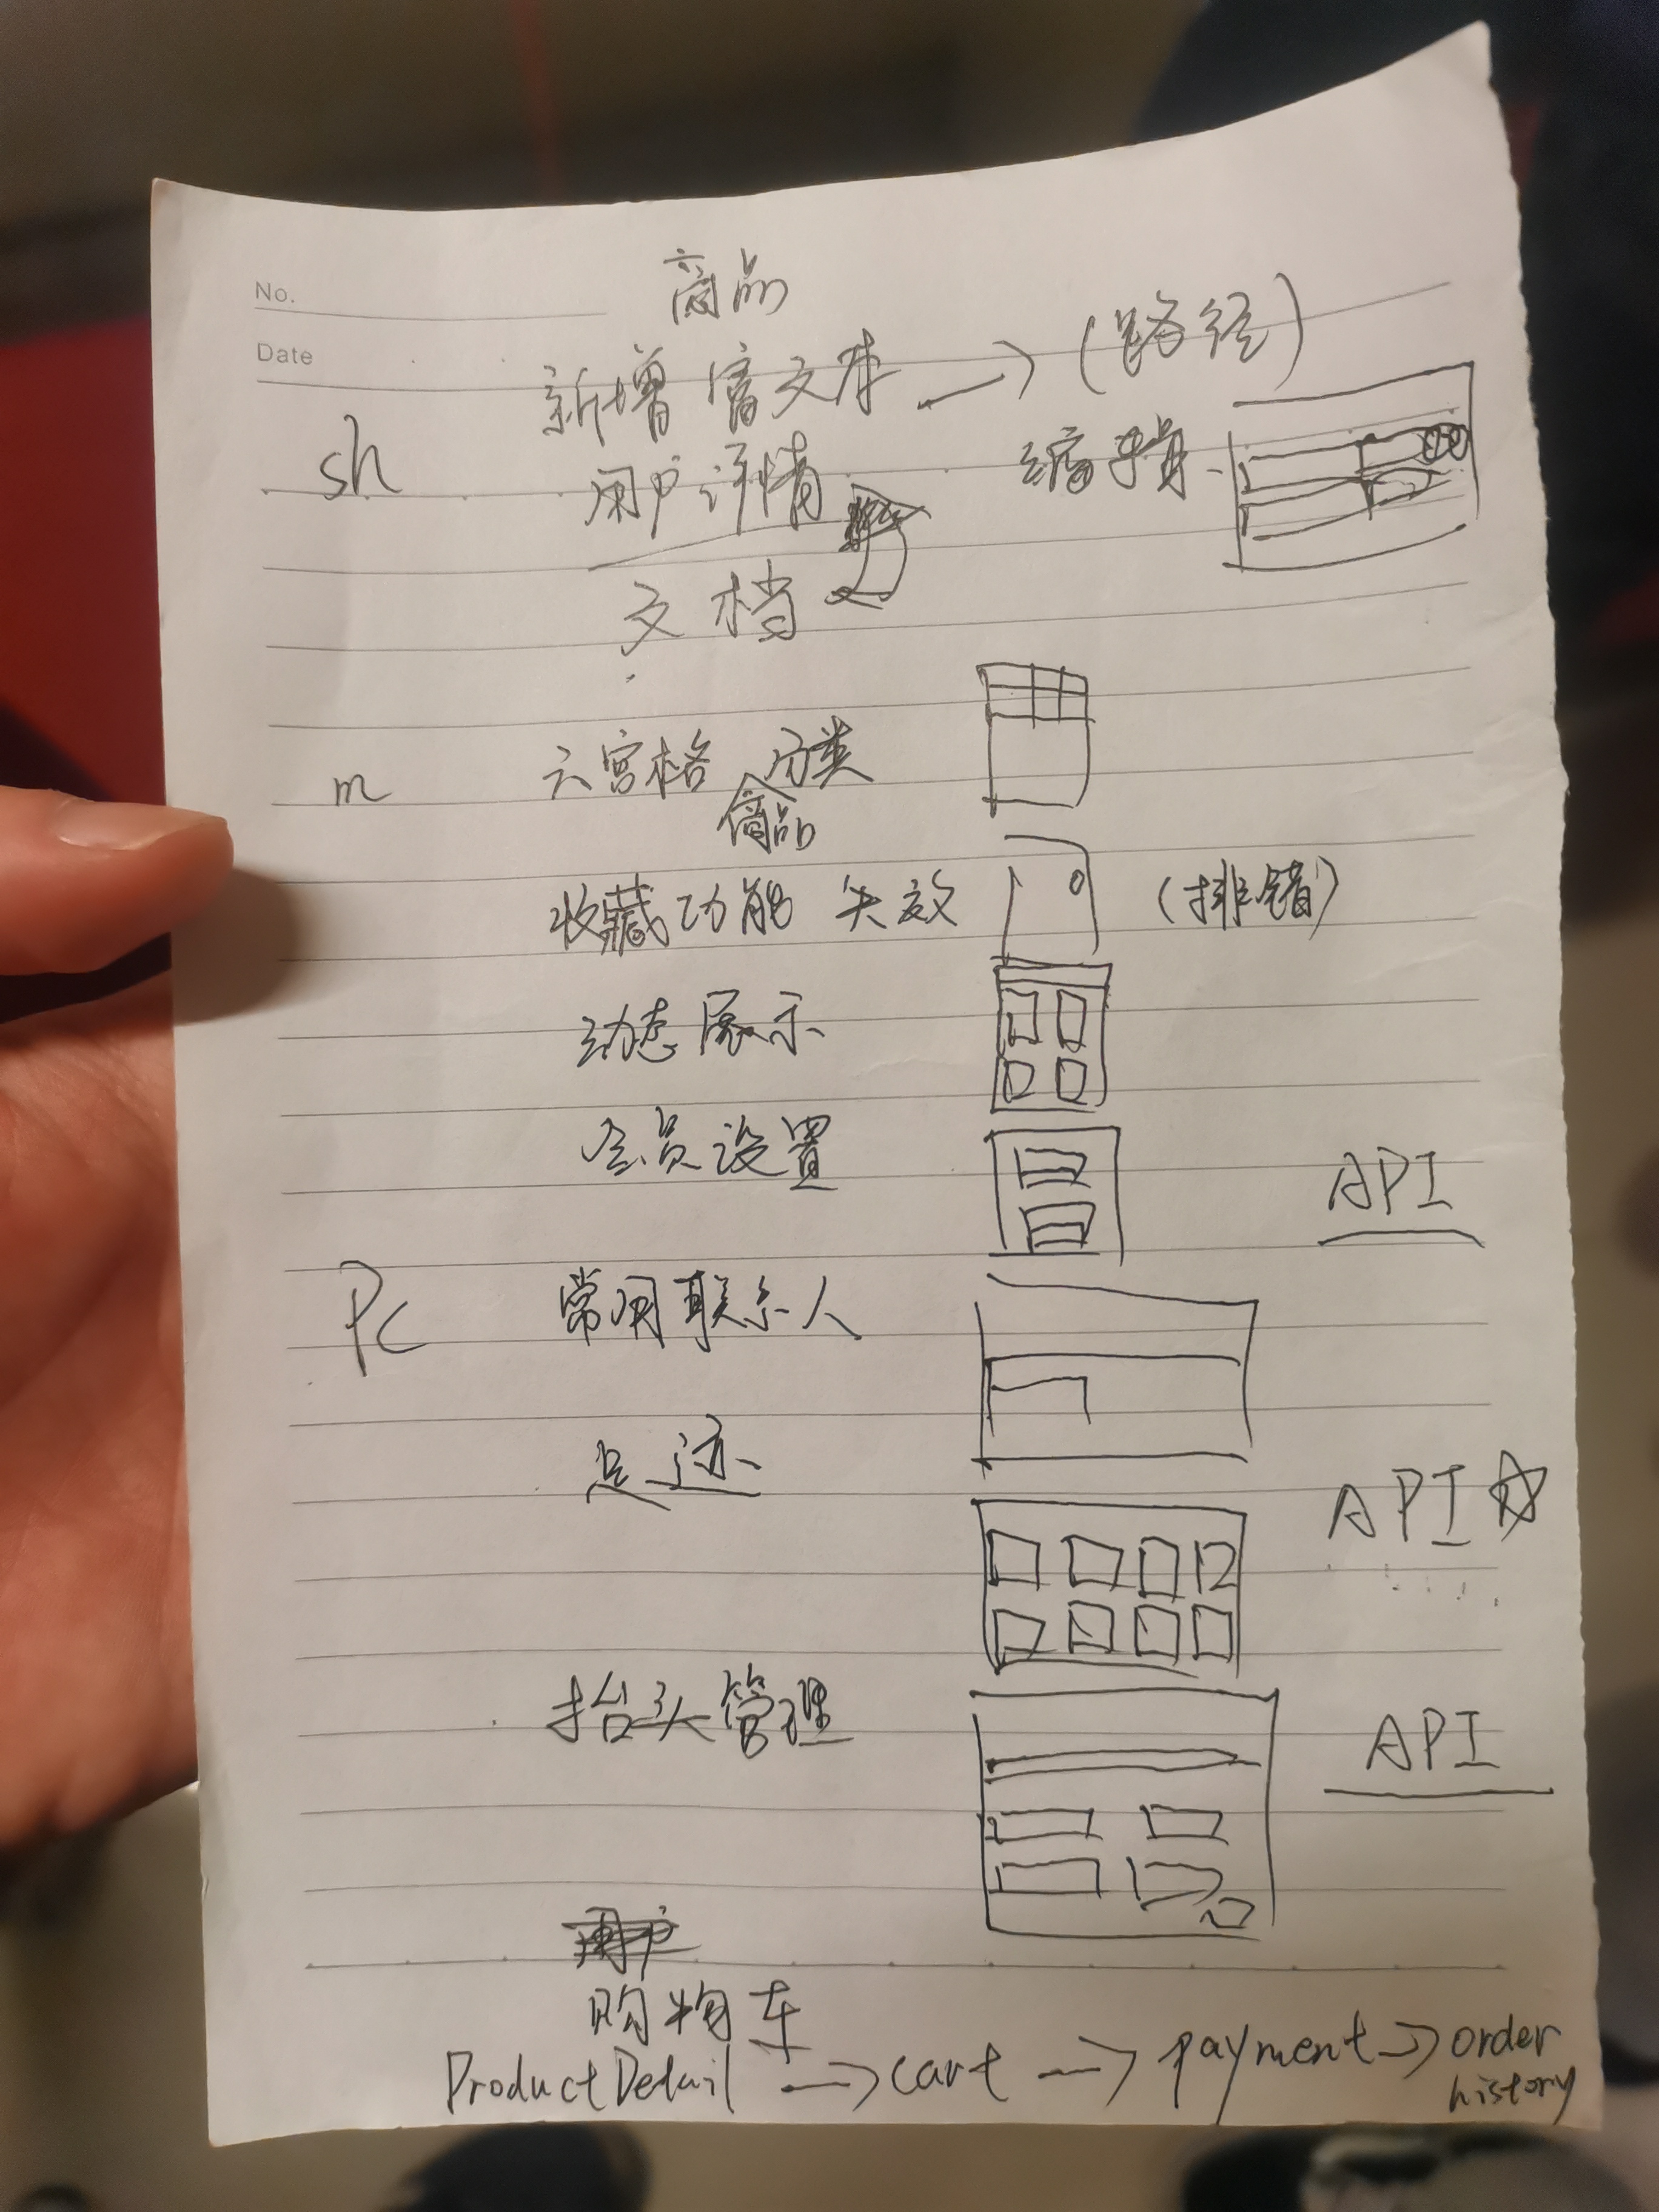 No.
商品
Date
新增富文本 → (路径)
sh
用户详情
编辑
文档
m
六宫格 分类
商品
收藏功能 失效
(排错)
动态展示
会员设置
API
Pc
常用联系人
足迹
API ☆
抬头管理
API
用户
购物车
ProductDetail → cart → payment → order
history